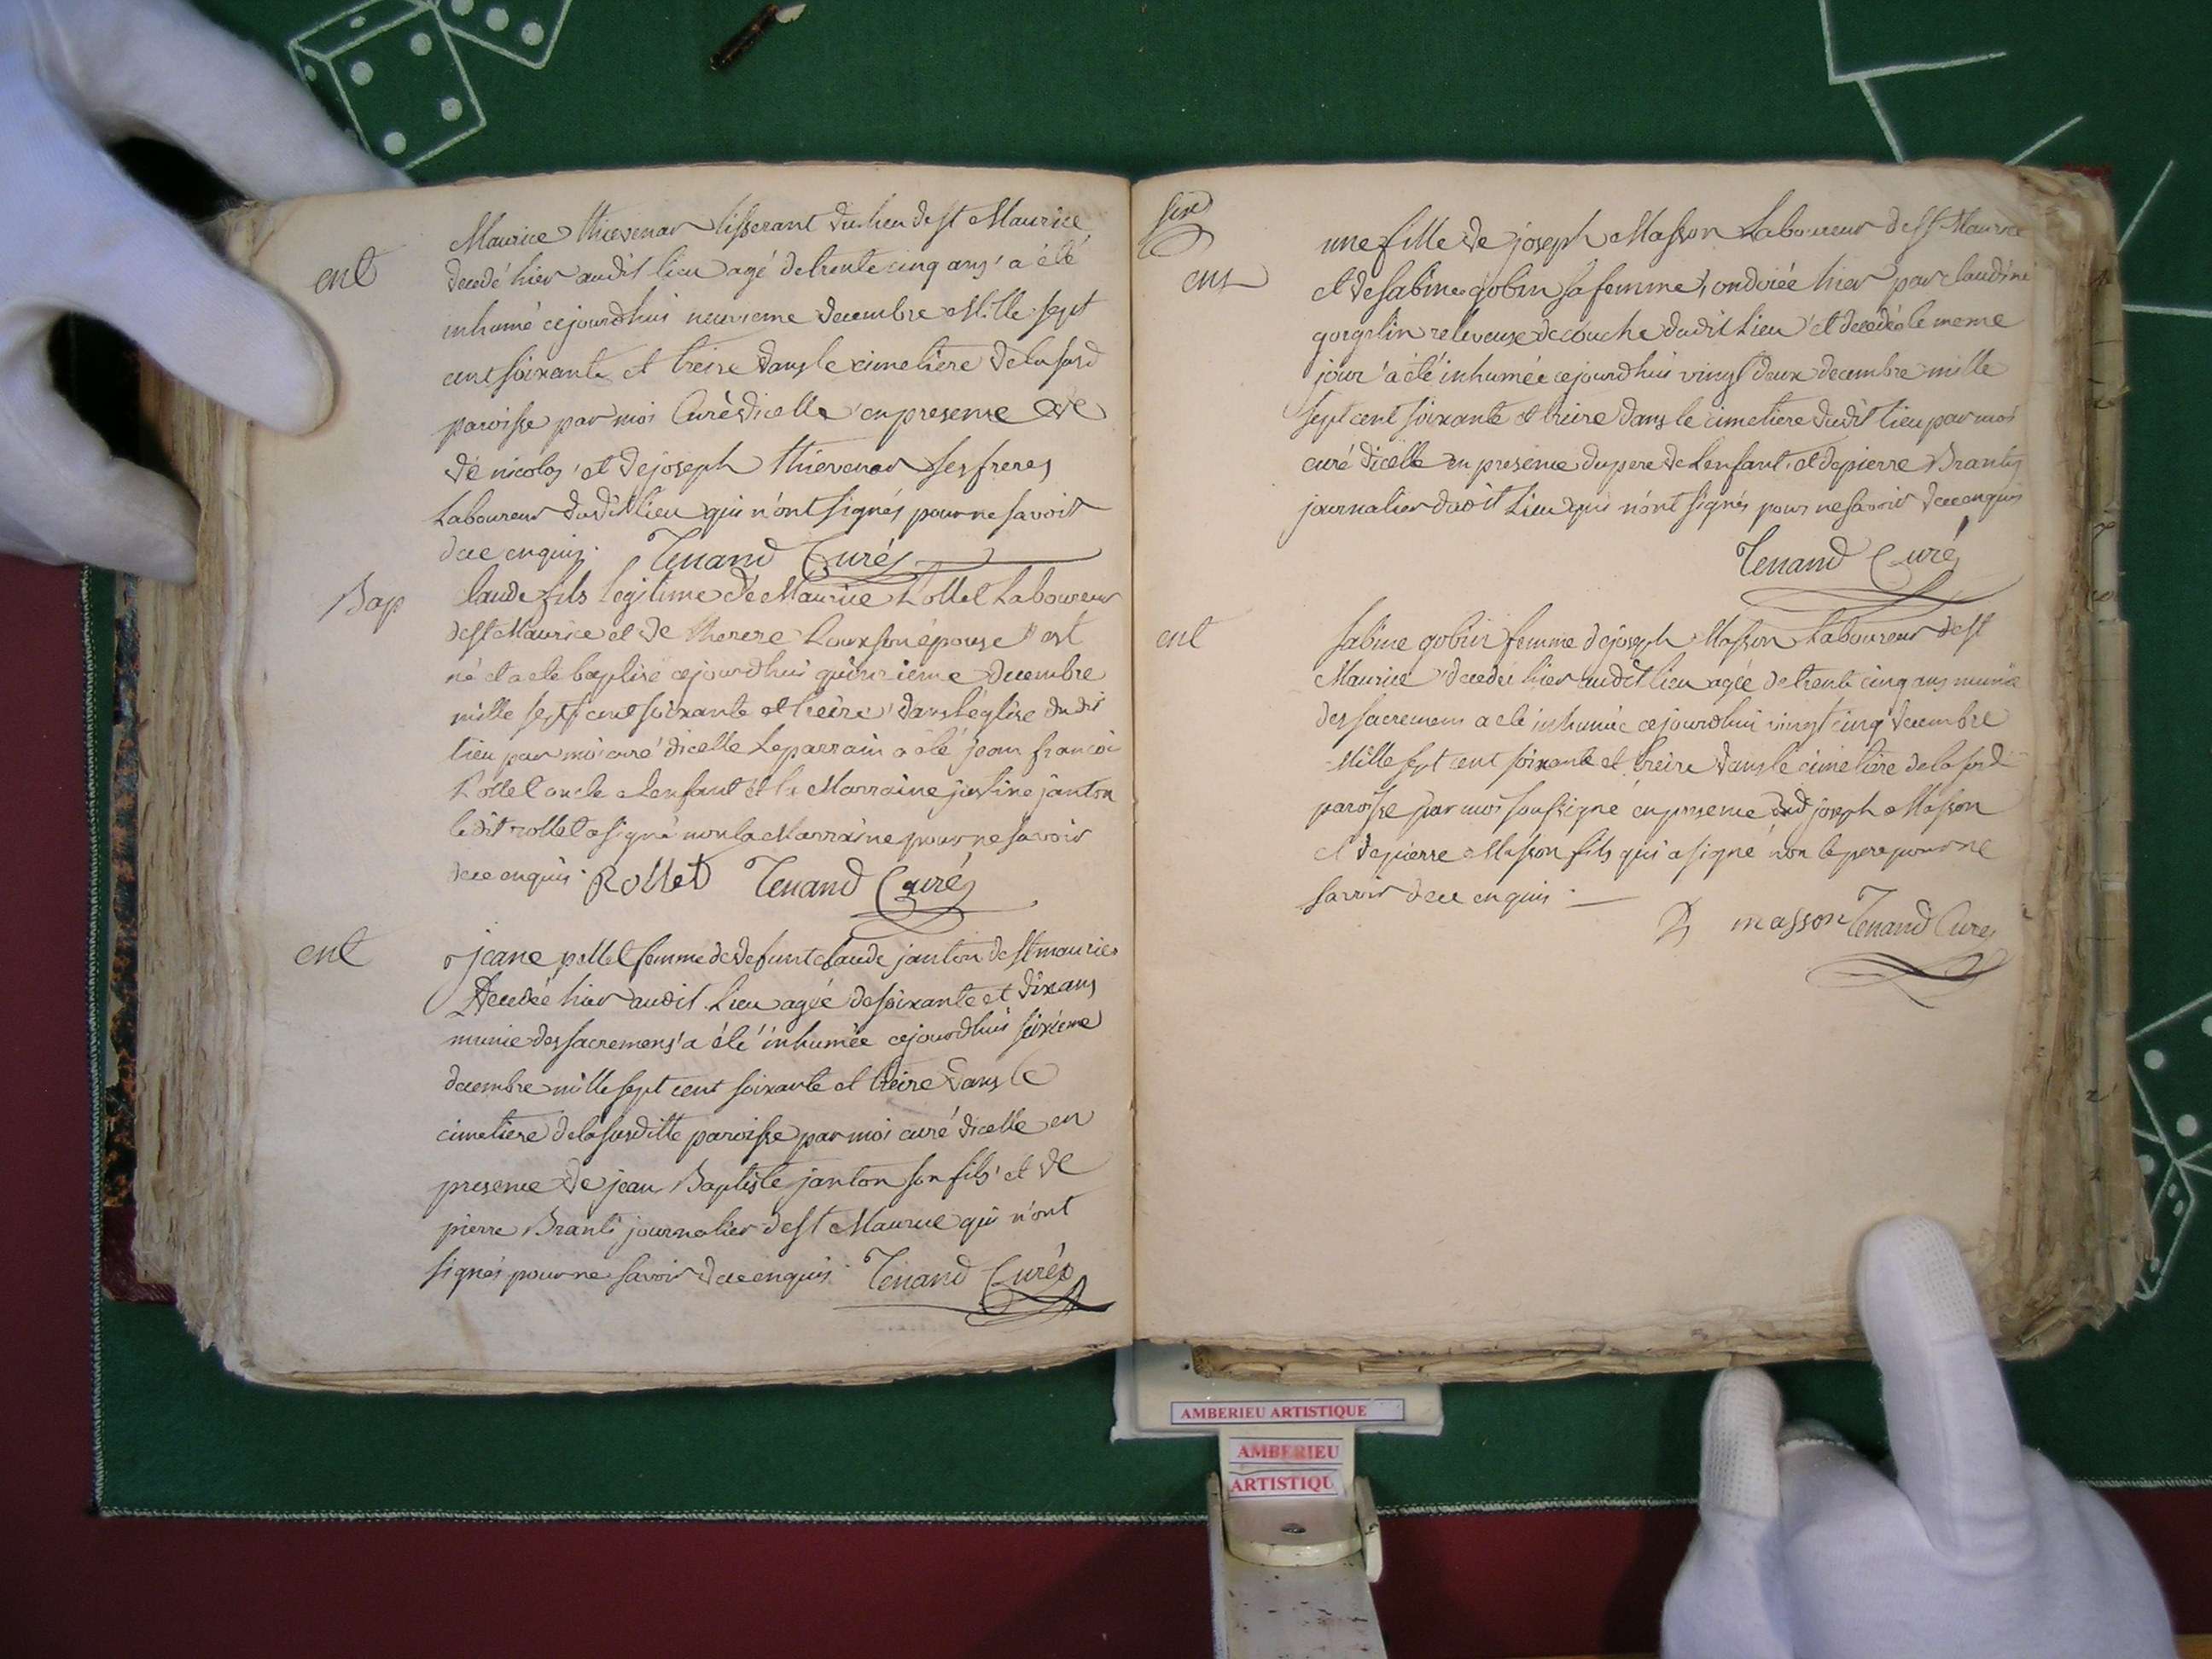 ent
Maurice Thievenar tisserant du lieu de st Maurice
decedé hier audit lieu agé de trente cinq ans a été
inhumé cejourdhui neuvieme decembre Mille sept
cent soixante et treize dans le cimetiere de la susd
paroisse par moi Curé dicelle en presence de
de nicolas et de joseph thievenar ses freres
Laboureur dudit lieu qui n'ont signés pour ne savoir
de ce enquis. Tenand Curé
Bap
laude fils legitime de Maurice Rollet Laboureur
de st Maurice et de therese son épouse est
né et a été baptisé cejourdhui quinzieme decembre
mille sept cent soixante et treize dans l'eglise du dit
lieu par moi curé dicelle Le parrain a été jean francoi
Rollet oncle a lenfant et la Marraine justine janton
le dit rollet a signé non la Marraine pour ne savoir
de ce enquis. Rollet Tenand Curé
ent
jeane pollet femme de defunt claude janton de st maurice
decedée hier audit Lieu agée de soixante et dix ans
munie des sacremens a été inhumée cejourdhui seizieme
decembre mille sept cent soixante et treize dans le
cimetiere de la susditte paroisse par moi curé dicelle en
presence de jean Baptiste janton son fils et de
pierre Branti journalier de st Maurice qui n'ont
signés pour ne savoir de ce enquis. Tenand Curé
six
ent
une fille de joseph Masson Laboureur de st Maurice
et de sabine gobin sa femme, ondoiée hier par claudine
gorgelin releveuse de couche dudit Lieu et decedée le meme
jour a été inhumée cejourdhui vingt deux decembre mille
sept cent soixante et treize dans le cimetiere dudit lieu par moi
curé dicelle en presence du pere de Lenfant et de pierre Branty
journalier dudit Lieu qui n'ont signés pour ne savoir de ce enquis
Tenand Curé
ent
sabine gobin femme de joseph Masson Laboureur de st
Maurice decedée hier audit lieu agée de trente cinq ans munie
des sacremens a été inhumée cejourdhui vingt cinq decembre
Mille sept cent soixante et treize dans le cimetiere de la susd
paroisse par moi soussigné en presence dud joseph Masson
et de pierre Masson fils qui a signé non le pere pour ne
savoir de ce enquis.
P masson Tenand Curé
AMBERIEU ARTISTIQUE
AMBERIEU
ARTISTIQU